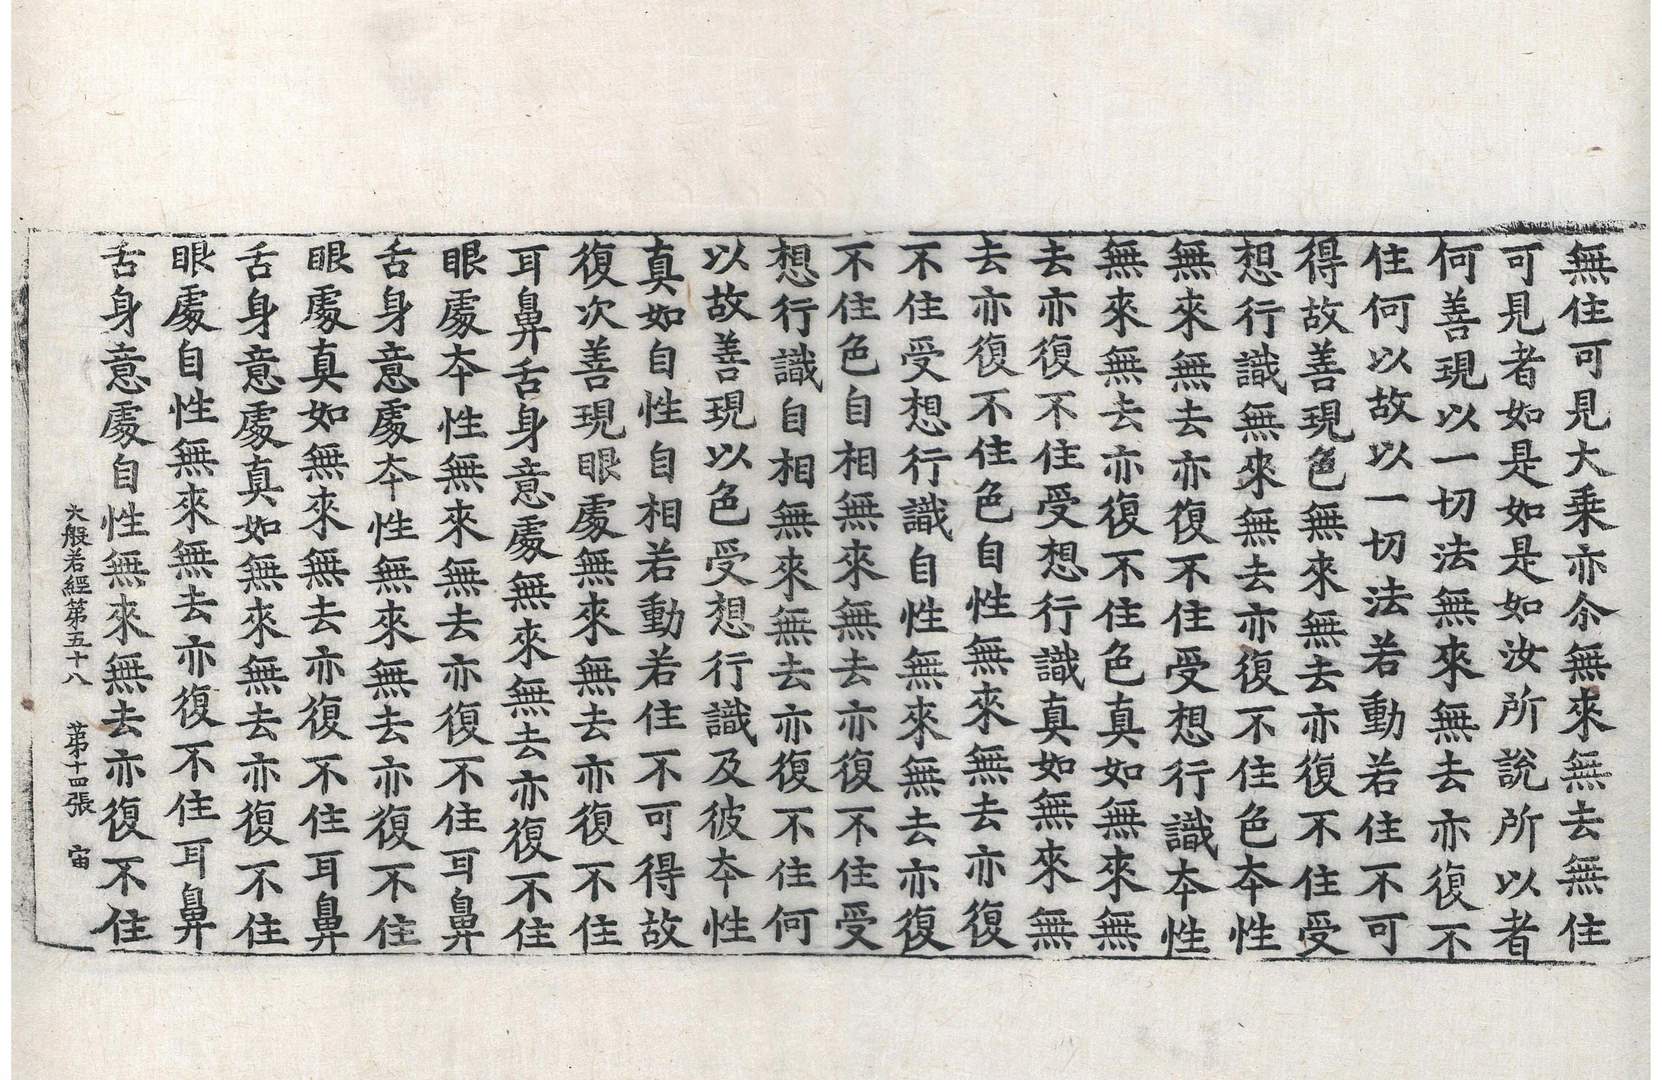 無住可見大乘亦尒無來無去無住
可見者如是如是如汝所說所以者
何善現以一切法無來無去亦復不
住何以故以一切法若動若住不可
得故善現色無來無去亦復不住受
想行識無來無去亦復不住色本性
無來無去亦復不住受想行識本性
無來無去亦復不住色真如無來無
去亦復不住受想行識真如無來無
去亦復不住色自性無來無去亦復
不住受想行識自性無來無去亦復
不住色自相無來無去亦復不住受
想行識自相無來無去亦復不住何
以故善現以色受想行識及彼本性
真如自性自相若動若住不可得故
復次善現眼處無來無去亦復不住
耳鼻舌身意處無來無去亦復不住
眼處本性無來無去亦復不住耳鼻
舌身意處本性無來無去亦復不住
眼處真如無來無去亦復不住耳鼻
舌身意處真如無來無去亦復不住
眼處自性無來無去亦復不住耳鼻
舌身意處自性無來無去亦復不住
大般若經第五十八 第十四張 宙